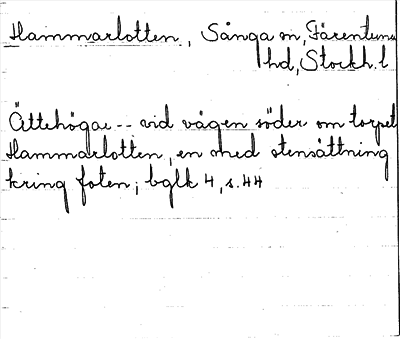 Hammarlotten, Sånga sn, Färentuna
hd, Stockh. l
Ättehögar -- vid vägen söder om torpet
Hammarlotten, en med stensättning
kring foten; bglk 4, s. 44